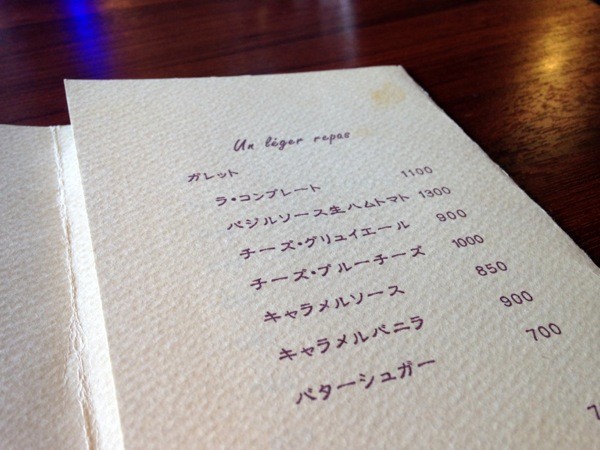 Un léger repas
ガレット
ラ・コンプレート 1100
バジルソース生ハムトマト 1300
チーズ・グリュイエール 900
チーズ・ブルーチーズ 1000
キャラメルソース 850
キャラメルバニラ 900
バターシュガー 700